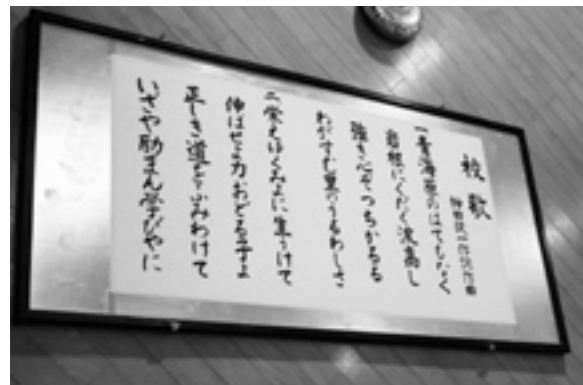 校歌
一 青海原のはてもなく
岩根にくだく波高し
強き心ぞつちかるる
わがすむ里のうるわしさ
二 栄えゆくみよに生うけて
伸ばせよ力
正しき道をふみわけて
いざや励まん学びやに